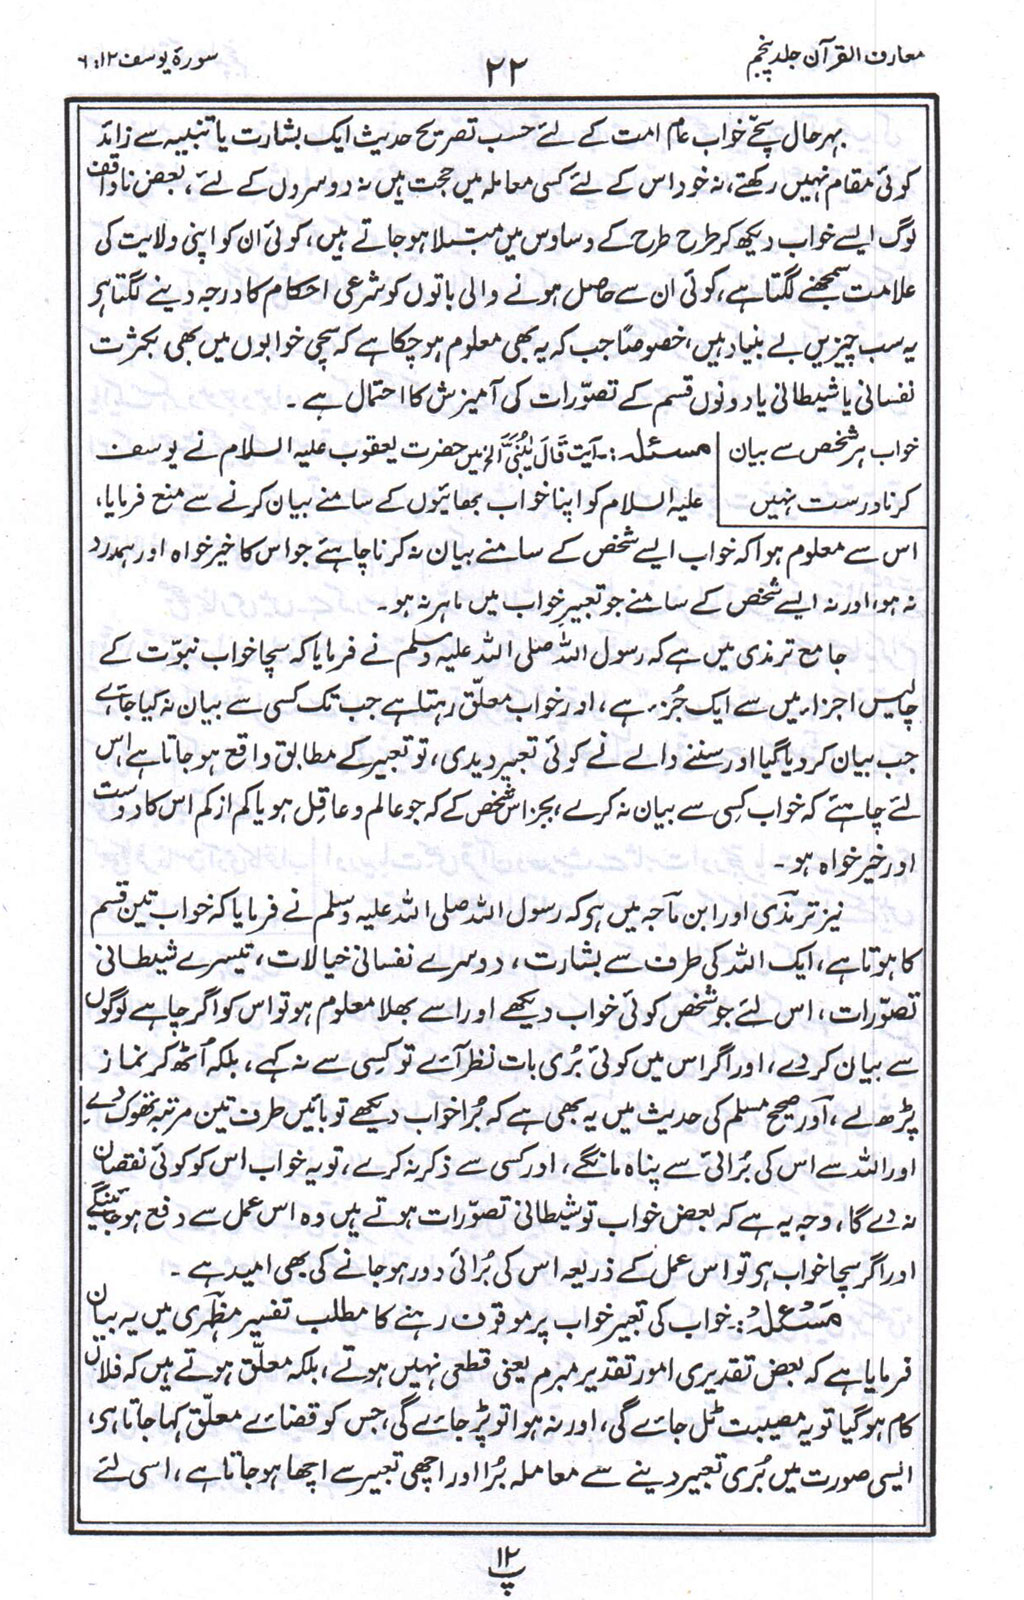 معارف القرآن جلد پنجم
۲۲
سورۂ یوسف ۱۲ : ۶
بہرحال سچے خواب عام امت کے لئے حسب تصریح حدیث ایک بشارت یا تنبیہ سے زائد
کوئی مقام نہیں رکھتے، نہ خود اس کے لئے کسی معاملہ میں حجت ہیں نہ دوسروں کے لئے، بعض ناواقف
لوگ ایسے خواب دیکھ کر طرح طرح کے وساوس میں مبتلا ہوجاتے ہیں، کوئی ان کو اپنی ولایت کی
علامت سمجھنے لگتا ہے، کوئی ان سے حاصل ہونے والی باتوں کو شرعی احکام کا درجہ دینے لگتا ہی
یہ سب چیزیں بے بنیاد ہیں، خصوصاً جب کہ یہ بھی معلوم ہوچکا ہے کہ سچی خوابوں میں بھی بکثرت
نفسانی یا شیطانی یا دونوں قسم کے تصوّرات کی آمیزش کا احتمال ہے ۔
خواب ہر شخص سے بیان
کرنا درست نہیں
مسئلہ :۔ آیت قَالَ یٰبُنَیَّ الخ میں حضرت یعقوب علیہ السلام نے یوسف
علیہ السلام کو اپنا خواب بھائیوں کے سامنے بیان کرنے سے منع فرمایا،
اس سے معلوم ہوا کہ خواب ایسے شخص کے سامنے بیان نہ کرنا چاہئے جو اس کا خیر خواہ اور ہمدرد
نہ ہو، اور نہ ایسے شخص کے سامنے جو تعبیرِ خواب میں ماہر نہ ہو۔
جامع ترمذی میں ہے کہ رسول اللہ صلی اللہ علیہ وسلم نے فرمایا کہ سچا خواب نبوّت کے
چالیس اجزاء میں سے ایک جُزء ہے، اور خواب معلّق رہتا ہے جب تک کسی سے بیان نہ کیا جائے
جب بیان کردیا گیا اور سننے والے نے کوئی تعبیر دیدی، تو تعبیر کے مطابق واقع ہوجاتا ہے اس
لئے چاہئے کہ خواب کسی سے بیان نہ کرے، بجز اس شخص کے کہ جو عالم و عاقل ہو یا کم از کم اس کا دوست
اور خیر خواہ ہو ۔
نیز ترمذی اور ابن ماجہ میں ہی کہ رسول اللہ صلی اللہ علیہ وسلم نے فرمایا کہ خواب تین قسم
کا ہوتا ہے، ایک اللہ کی طرف سے بشارت، دوسرے نفسانی خیالات، تیسرے شیطانی
تصوّرات، اس لئے جو شخص کوئی خواب دیکھے اور اسے بھلا معلوم ہو تو اس کو اگر چاہے لوگوں
سے بیان کردے، اور اگر اس میں کوئی بُری بات نظر آئے تو کسی سے نہ کہے، بلکہ اُٹھ کر نماز
پڑھ لے، اور صحیح مسلم کی حدیث میں یہ بھی ہے کہ بُرا خواب دیکھے تو بائیں طرف تین مرتبہ تھوک دے
اور اللہ سے اس کی بُرائی سے پناہ مانگے، اور کسی سے ذکر نہ کرے، تو یہ خواب اس کو کوئی نقصان
نہ دے گا، وجہ یہ ہے کہ بعض خواب تو شیطانی تصوّرات ہوتے ہیں وہ اس عمل سے دفع ہوجائینگے
اور اگر سچا خواب ہی تو اس عمل کے ذریعہ اس کی بُرائی دور ہوجانے کی بھی امید ہے ۔
مَسْئلہ :۔ خواب کی تعبیر خواب پر موقوف رہنے کا مطلب تفسیر مظہری میں یہ بیان
فرمایا ہے کہ بعض تقدیری امور تقدیرِ مبرم یعنی قطعی نہیں ہوتے، بلکہ معلّق ہوتے ہیں کہ فلاں
کام ہوگیا تو یہ مصیبت ٹل جائے گی، اور نہ ہوا تو پڑ جائے گی، جس کو قضائے معلّق کہا جاتا ہی،
ایسی صورت میں بُری تعبیر دینے سے معاملہ بُرا اور اچھی تعبیر سے اچھا ہوجاتا ہے، اسی لئے
پ ۱۲